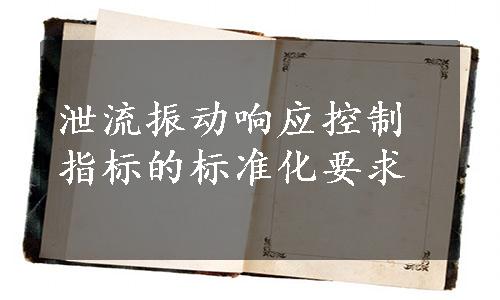 泄流振动响应控制
指标的标准化要求